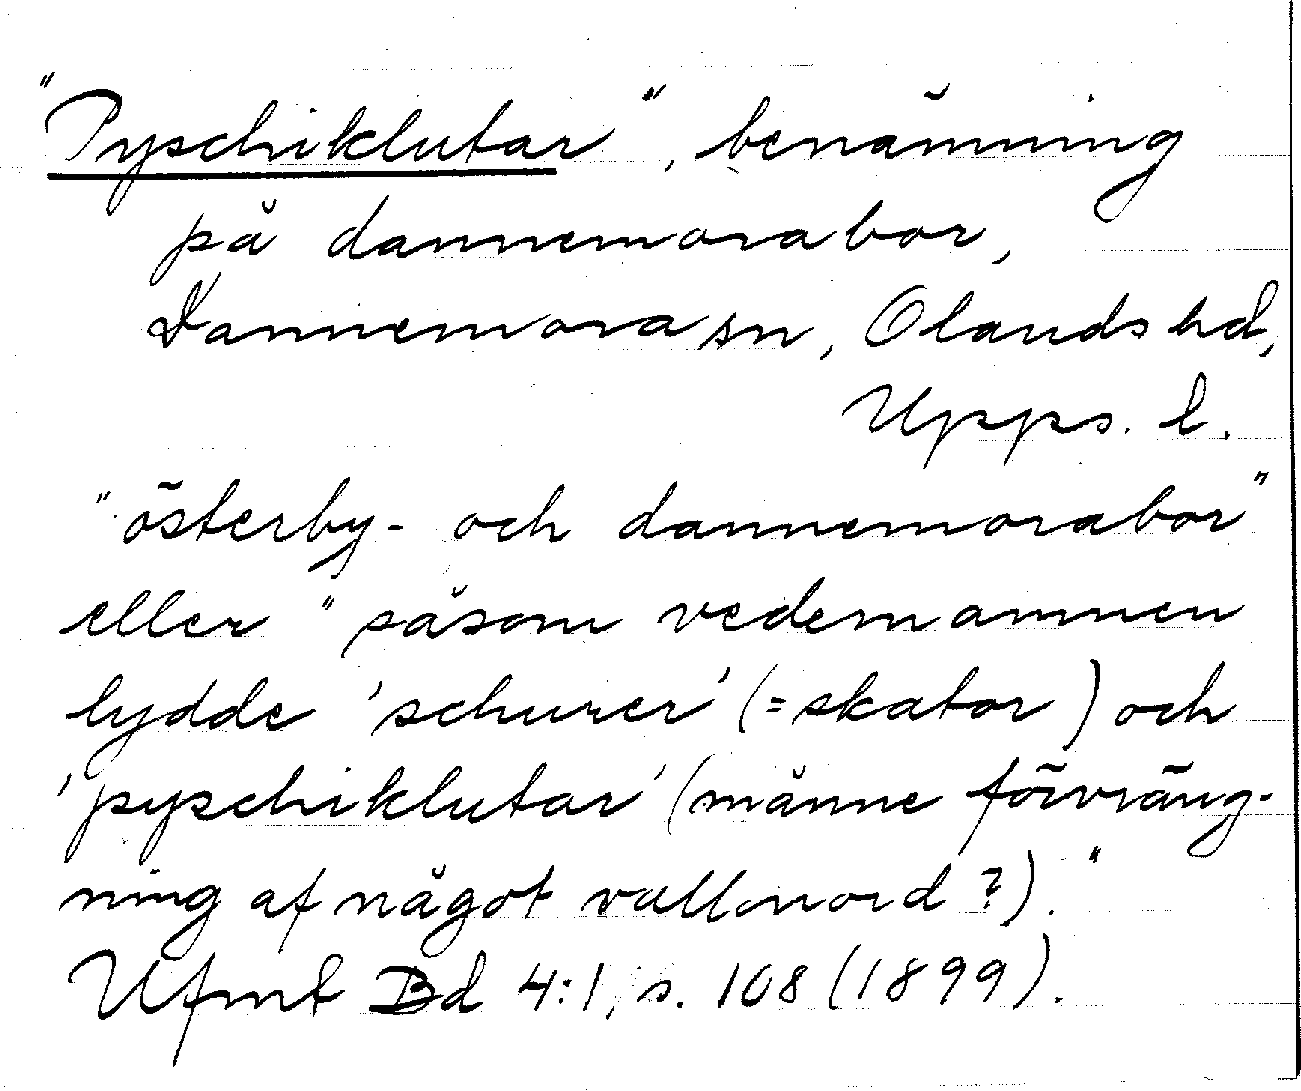 "Pyschiklutar", benämning
på dannemorabor,
Dannemora sn, Olands hd,
Upps. l.
"österby- och dannemorabor"
eller "såsom vedernamnen
lydde 'schurer' (=skator) och
'pyschiklutar' (månne förväng-
ning af något vallonord?)."
Ufmt Bd 4:1, s. 108 (1899).